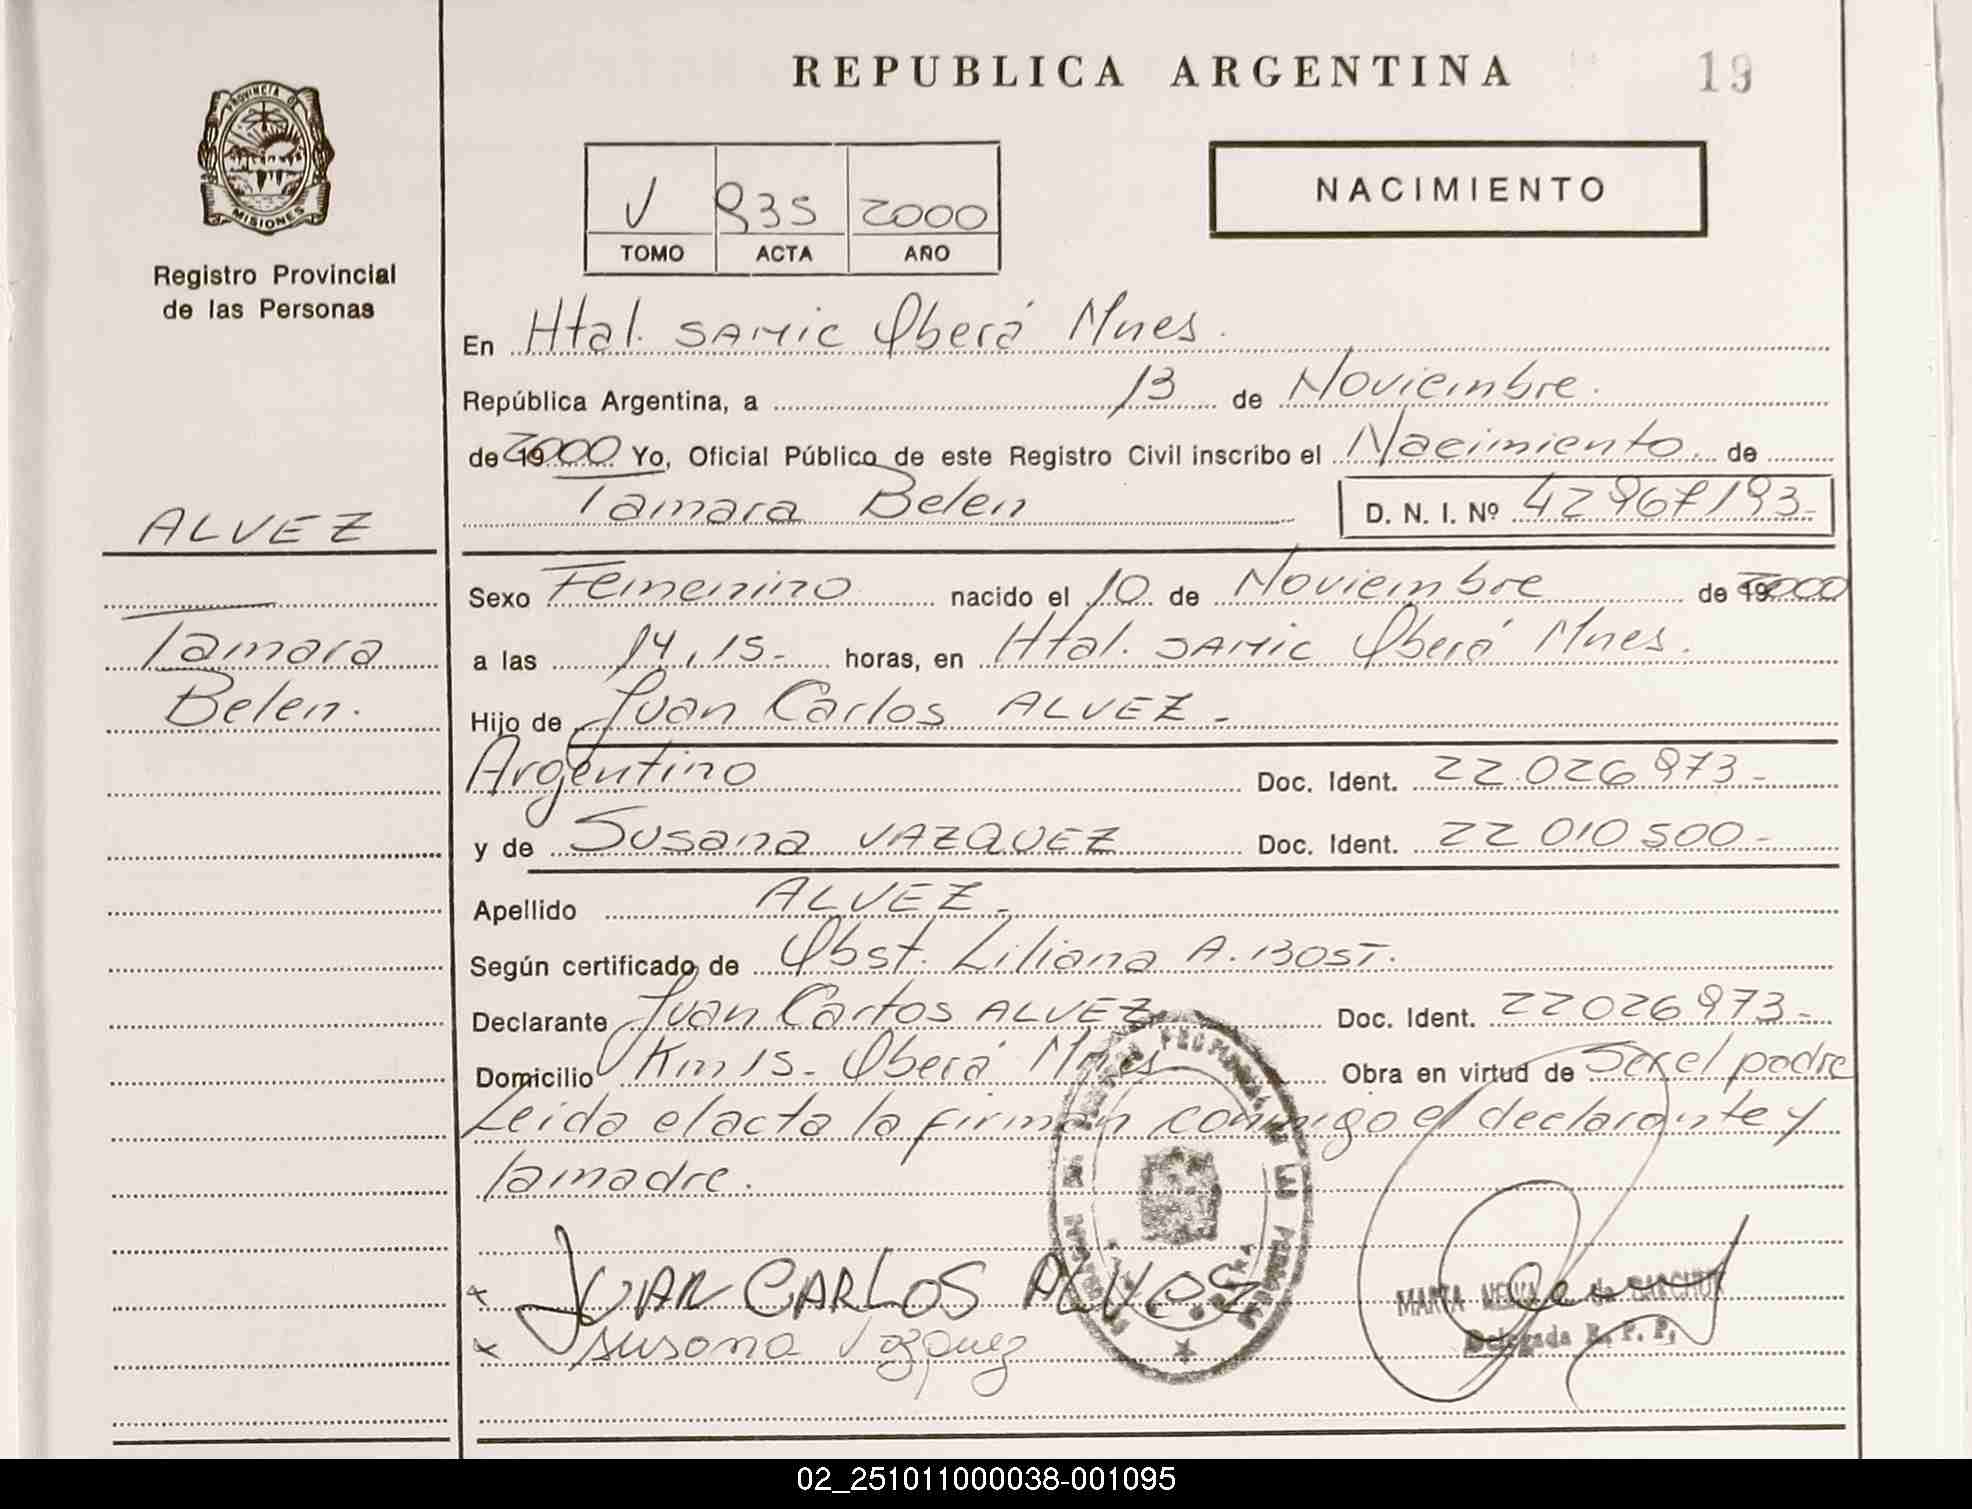 REPUBLICA ARGENTINA
19
PROVINCIA DE
MISIONES
Registro Provincial
de las Personas
V 935 2000
TOMO ACTA AÑO
NACIMIENTO
En Htal. SAMIC Oberá Mnes.
República Argentina, a 13 de Noviembre.
de 2000 Yo, Oficial Público de este Registro Civil inscribo el Nacimiento de
Tamara Belen D. N. I. Nº 42967193-
ALVEZ
Tamara
Belen.
Sexo Femenino nacido el 10 de Noviembre de 2000
a las 14,15- horas, en Htal. SAMIC Oberá Mnes.
Hijo de Juan Carlos ALVEZ-
Argentino Doc. Ident. 22.026973-
y de Susana VAZQUEZ Doc. Ident. 22 010 500-
Apellido ALVEZ-
Según certificado de Obst. Liliana A. BOST.
Declarante Juan Carlos ALVEZ Doc. Ident. 22026973-
Domicilio Km 15- Oberá Mnes Obra en virtud de Ser el padre
Leida el acta la firman conmigo el declarante y
la madre.
x JUAN CARLOS ALVES
x Susana Vazquez
MARTA de
Delegada R. P. P.
02_251011000038-001095